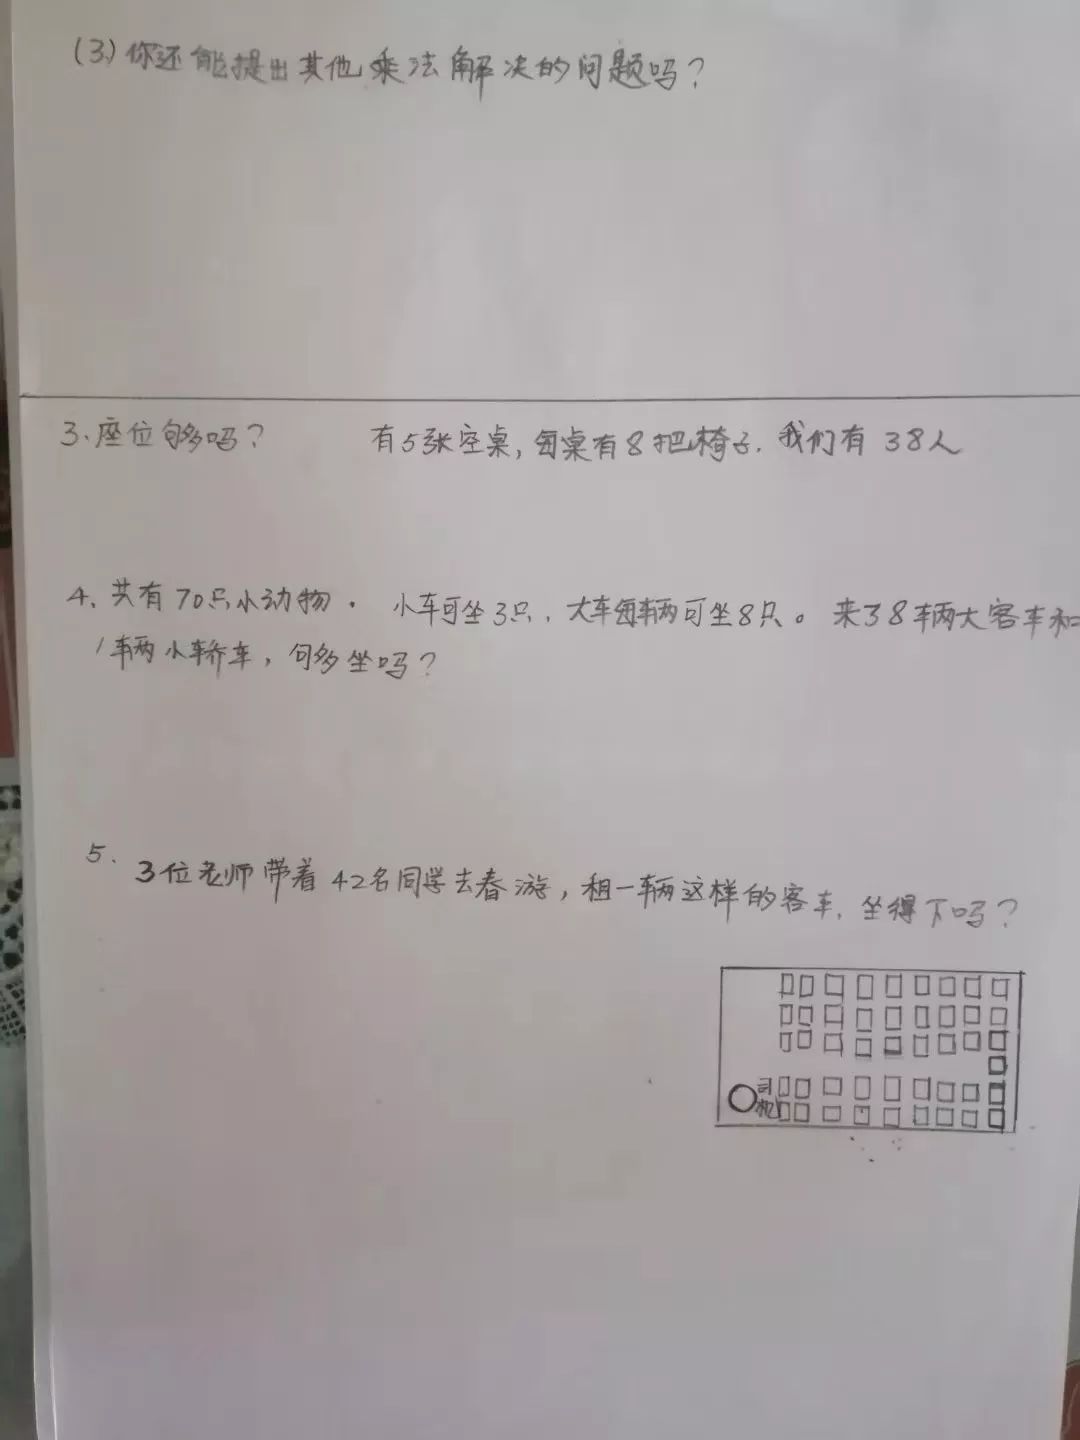 (3) 你还能提出其他乘法解决的问题吗?
3、座位够吗? 有5张空桌,每桌有8把椅子.我们有38人
4、共有70只小动物. 小车可坐3只,大车每辆可坐8只。来了8辆大客车和
1辆小轿车,够坐吗?
5、3位老师带着42名同学去春游,租一辆这样的客车.坐得下吗?
司机